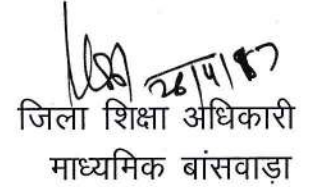 26/4/87
जिला शिक्षा अधिकारी
माध्यमिक बांसवाड़ा